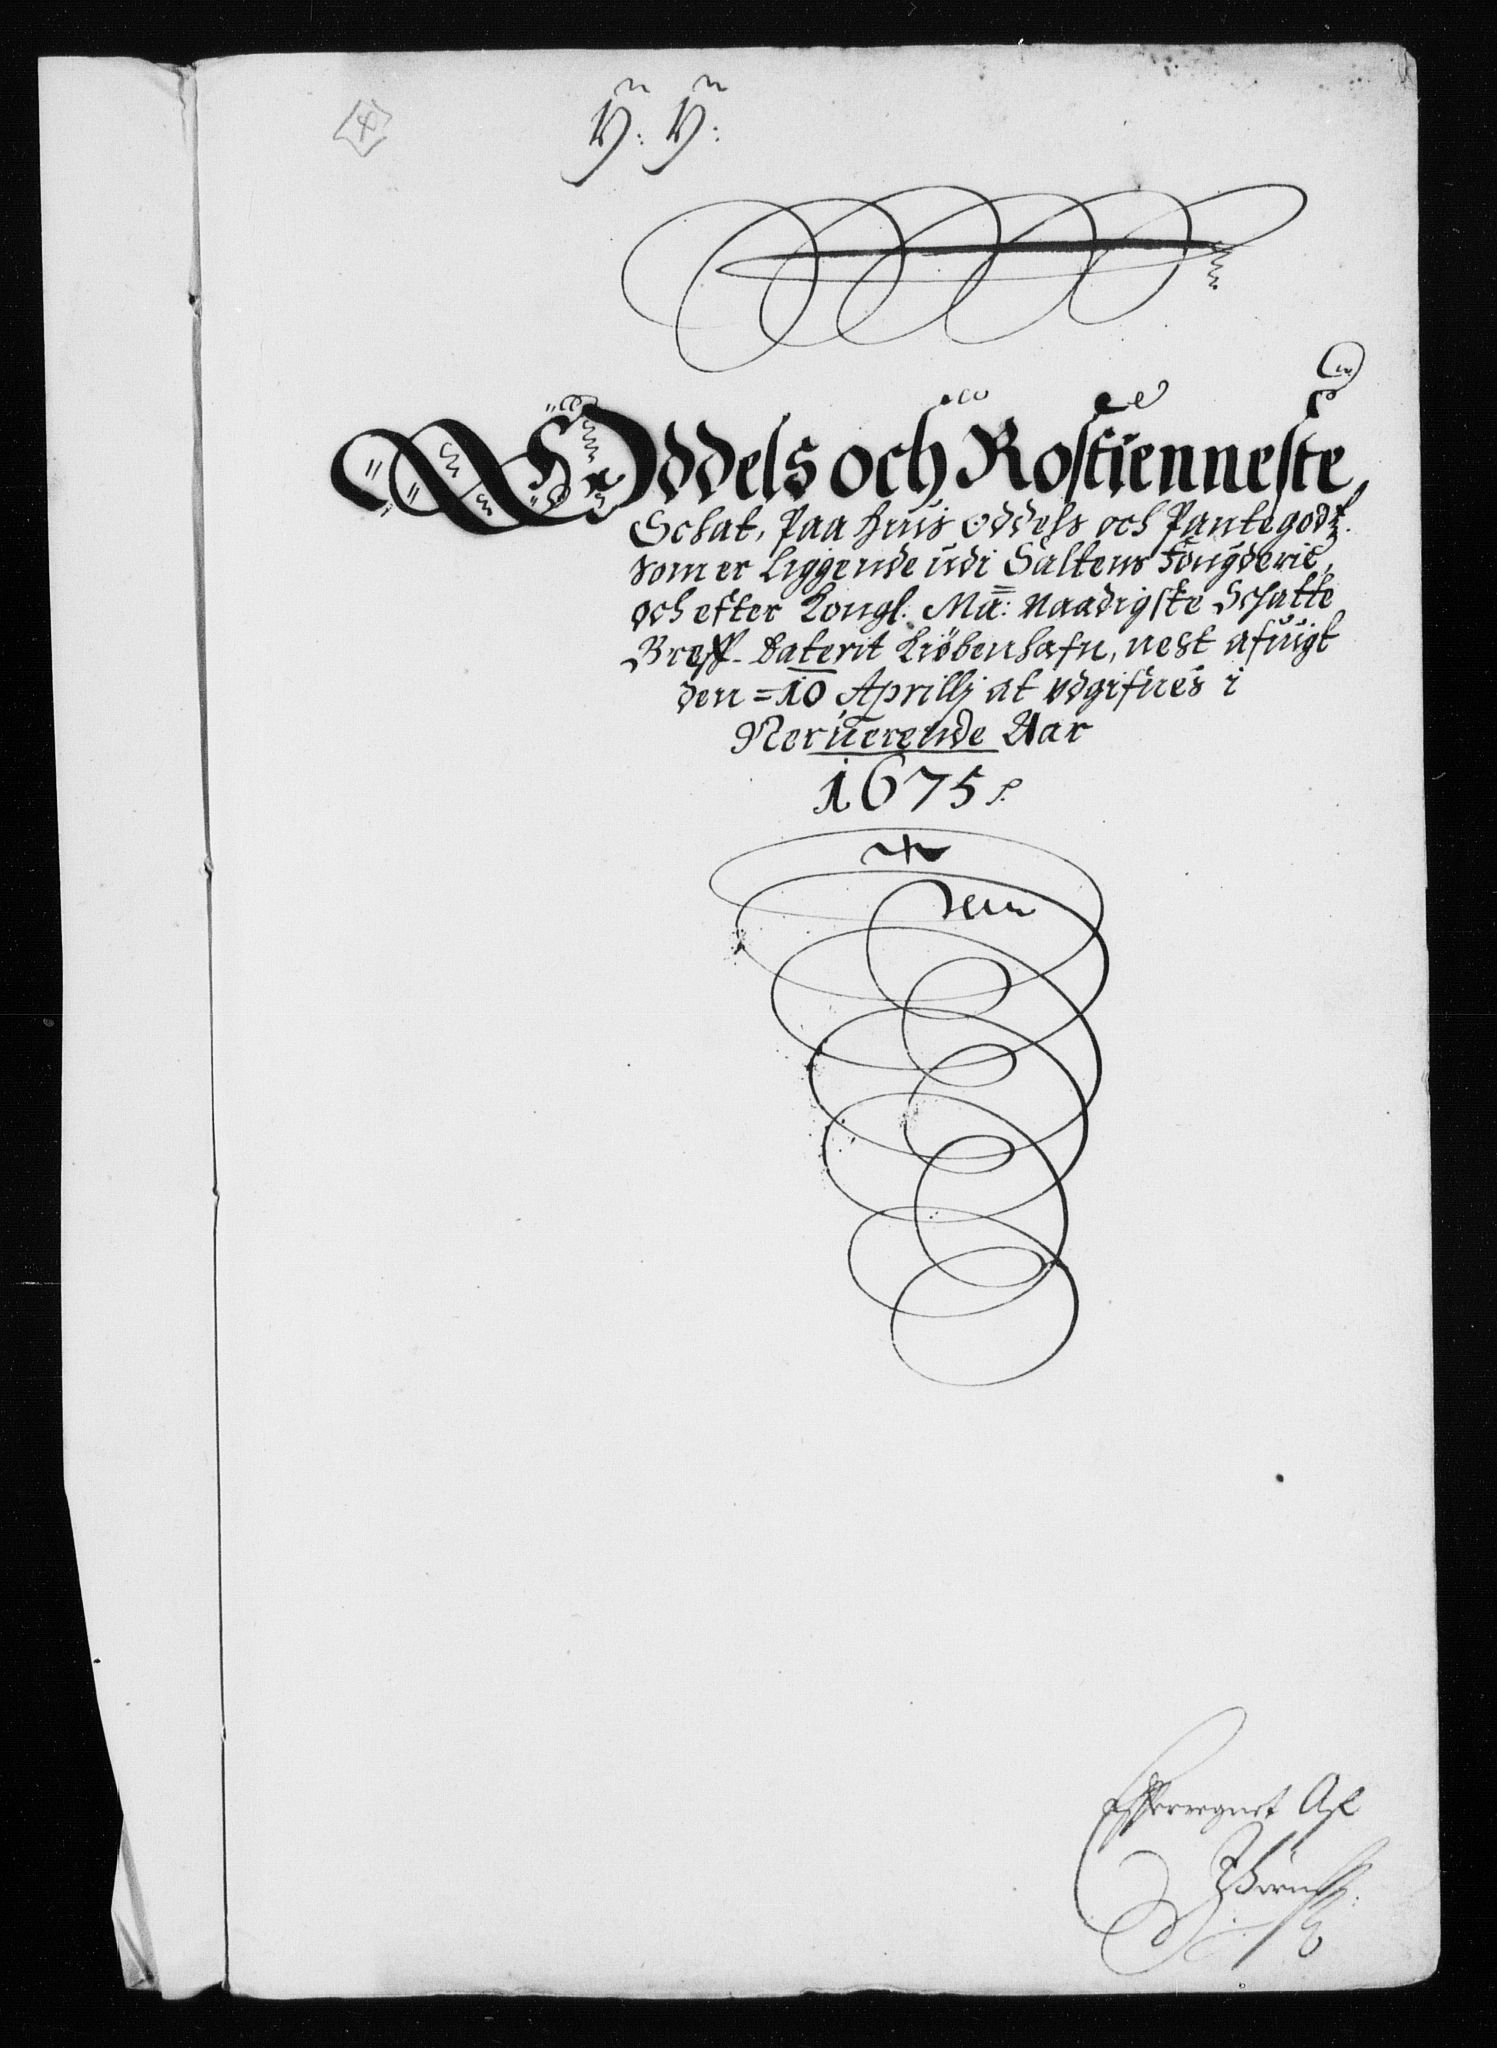 4
N: N:
Oddels och Rostienneste
Schat, Paa huis Oddels och Pantegodz.
som er Liggende udi Saltens Fougderie,
och efter Kongl. Ma: Naadigste Schatte
Breff. Daterit Kiøbenhafn, nest afuigt
den = 10 Aprillj at udgifues i
Neruerende Aar
1675
Efterregnet Af